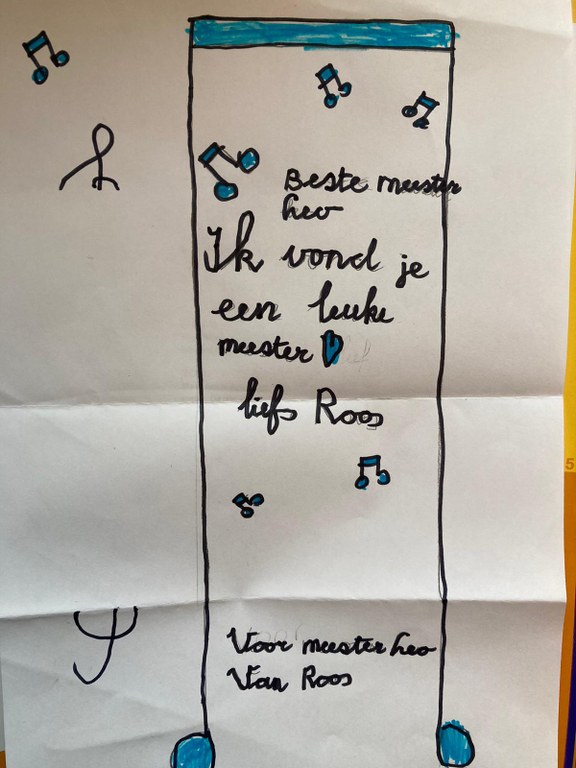 Beste meester
Leo
Ik vond je
een leuke
meester
liefs Roos
Voor meester Leo
Van Roos
5